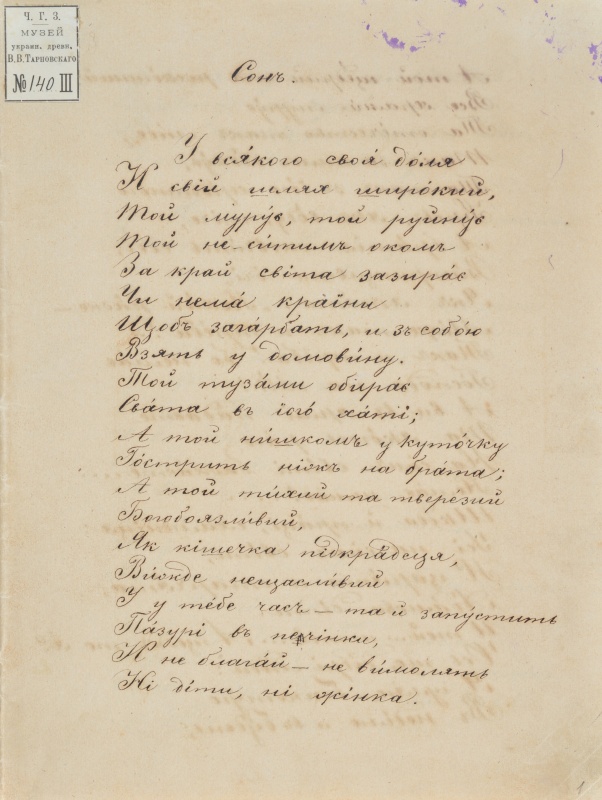 Ч. Г. З.
МУЗЕЙ
украин. древн.
В.В.Тарновскаго
№ 140 III
Сонъ.
У вся́кого своя́ до́ля
И свій шлях широ́кий,
Той муру́є, той руйну́є
Той не-си́тимъ окомъ
За край світа зазира́є
Чи нема́ краіни
Щобъ зага́рбать, и зъ собо́ю
Взять у домови́ну.
Той туза́ми обира́є
Сва́та въ іого́ ха́ті;
А той ни́шкомъ у куто́чку
Го́стрить ніжъ на бра́та;
А той ти́хий та твере́зий
Богобоязли́вий,
Як кішечка підкра́десця,
Ви́жде нещасли́вий
У у те́бе часъ — та й запу́стить
Па́зурі въ печінки,
И не благай — не ви́молять
Ні діти, ні жінка.